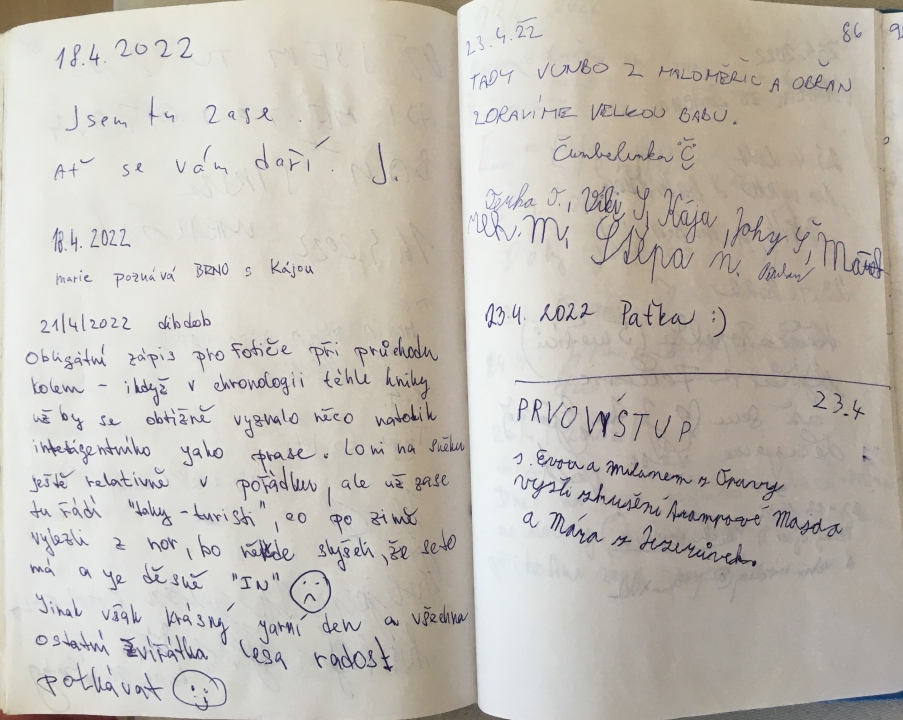 18.4.2022
Jsem tu zase.
Ať se vám daří. J.
18.4. 2022
marie poznává BRNO s Kájou
21/4/2022 dibdob
Obligátní zápis pro Fotiče při průchodu
kolem - ikdyž v chronologii téhle knihy
už by se obtížně vyzvalo něco natolik
inteligentního yako prase. Loni na sněhu
ještě relativně v pořádku, ale už zase
tu řádí "taky-turisti", co po zimě
vylezli z nor, bo někde slyšeli, že se to
má a je děsně "IN" ☹
Yinak však krásný yarní den a všechna
ostatní zvířátka lesa radost
potkávat
86
23.4.22
TADY VUNBO Z MALOMĚŘIC A OBŘAN
ZDRAVÍME VELKOU BABU.
Čumbelinka Č
Terka T., Viki S, Kája, Johy Š,
Mek. M, Štěpa n.
23.4. 2022 Paťka :)
23.4
PRVOVÝSTUP
s. Evou a Milanem z Opavy
vyšli zkušení Magda
a Mára z Jezerůvek.